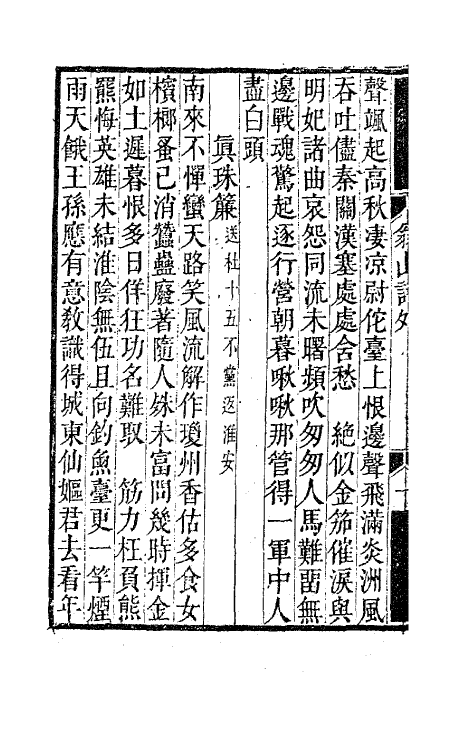 翁山詩外
聲颯起高秋淒凉尉佗臺上恨邊聲飛滿炎洲風
吞吐儘秦關漢塞處處含愁　絶似金笳催淚與
明妃諸曲哀怨同流未曙頻吹匆匆人馬難畱無
邊戰魂驚起逐行營朝暮啾啾那管得一軍中人
盡白頭
真珠簾送杜十五不黨返淮安
南來不憚蠻天路笑風流解作瓊州香估多食女
檳榔蚤已消蠶蠱廢著隨人殊未富問幾時揮金
如土遲暮恨多日佯狂功名難取　筋力枉負熊
羆悔英雄未結淮陰無伍且向釣魚臺更一竿煙
雨天餓王孫應有意教識得城東仙嫗君去看年